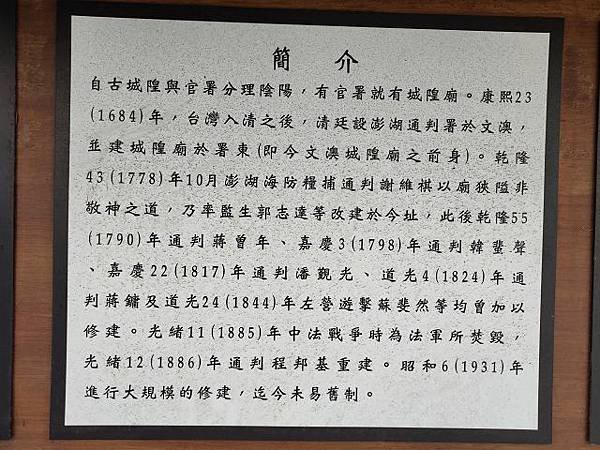 簡 介
自古城隍與官署分理陰陽，有官署就有城隍廟。康熙23
(1684)年，台灣入清之後，清廷設澎湖通判署於文澳，
並建城隍廟於署東(即今文澳城隍廟之前身)。乾隆
43(1778)年10月澎湖海防糧捕通判謝維祺以廟狹隘非
敬神之道，乃率監生郭志達等改建於今址，此後乾隆55
(1790)年通判蔣曾年、嘉慶3(1798)年通判韓蜚聲
、嘉慶22(1817)年通判潘覲光、道光4(1824)年通
判蔣鏞及道光24(1844)年左營遊擊蘇斐然等均曾加以
修建。光緒11(1885)年中法戰爭時為法軍所焚毀，
光緒12(1886)年通判程邦基重建。昭和6(1931)年
進行大規模的修建，迄今未易舊制。